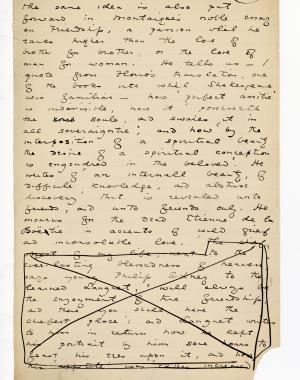 the same idea is also put
forward in Montaigne's noble essay
on Friendship, a passion which he
ranks higher than the love of
brother for brother, or the love of
man for woman. He tells us - I
quote from Florio's translation, one
of the books with which Shakespeare
was familiar - how "perfect amitie"
is indivisible, how it "possesseth
the soule, and swaies it in
all soveraigntie", and how "by the
interposition of a spiritual beauty
the desire of a spiritual conception
is engendred in the beloved." He
writes of an "internall beauty, of
difficile knowledge, and abstruse
discovery" that is revealed unto
friends, and unto friends only. He
mourns for the dead Etienne de la
Boëtie in accents of wild grief
and inconsolable love. The
of my life, next to the
everlasting blessedness of heaven
says young Philip Sidney to the
learned Languet, will always be
the enjoyment of true friendship
and there you shall have the
chiefest place: and Languet writes
to him in return how he kept
his portrait by him some hours to
feast his eyes upon it, and how
his appetite was rather increased